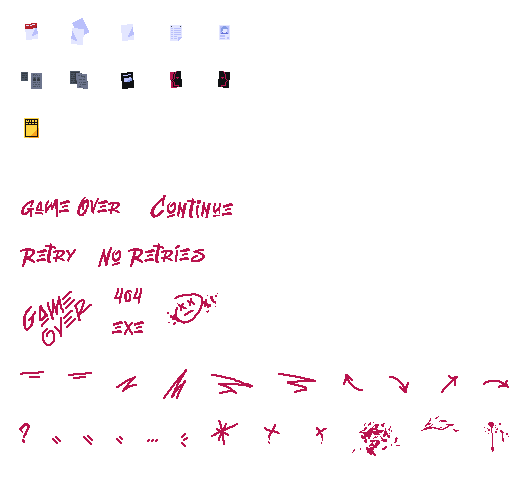 GAME OVER CONTINUE
RETRY NO RETRIES
GAME
OVER
404
EXE
?